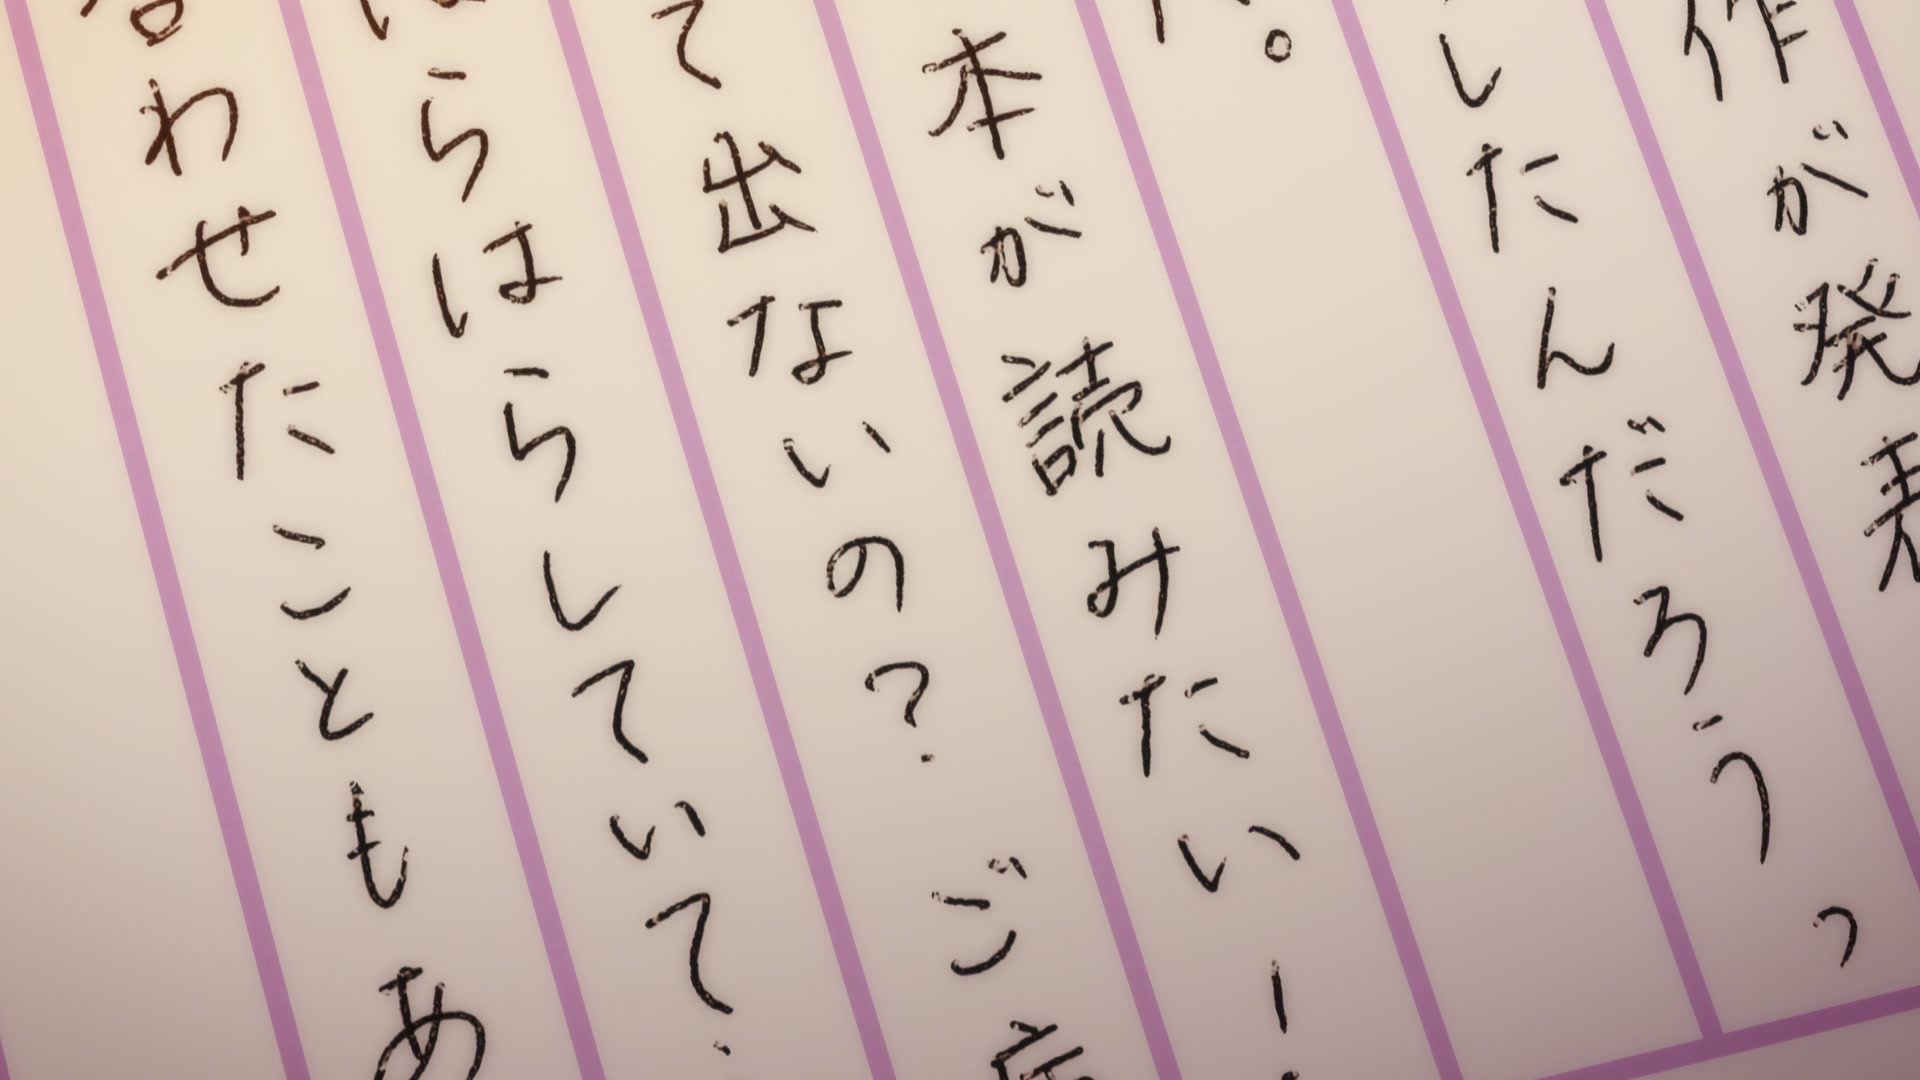 作が発表
したんだろうっ
。
本が読みたい!
て出ないの? ご病
はらはらしていて、
合わせたこともあ